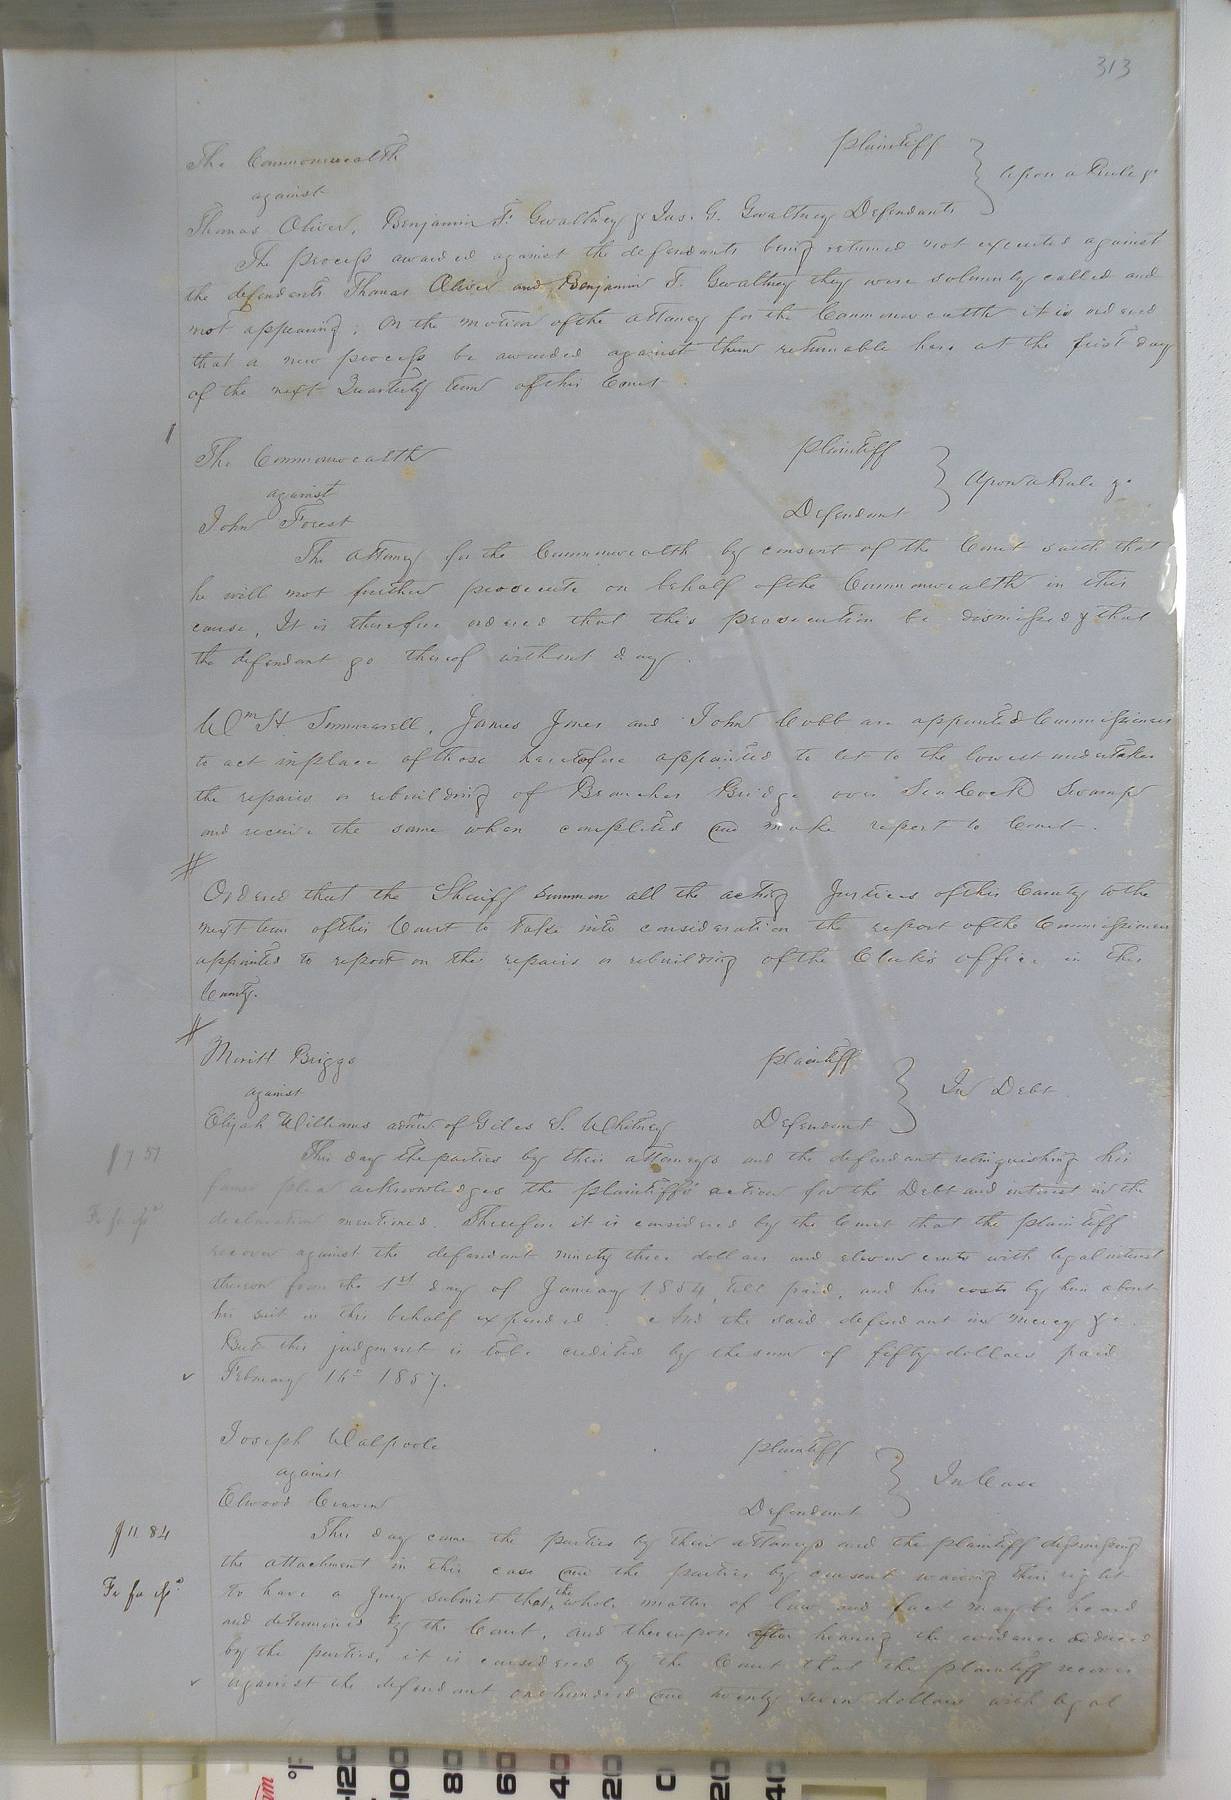 313
The Commonwealth Plaintiff
against Upon a Rule &c
Thomas Oliver, Benjamin F. Gwaltney & Jas. G. Gwaltney Defendants
The process awarded against the defendants being returned not executed against
the defendants Thomas Oliver and Benjamin F. Gwaltney they were solemnly called and
not appearing; On the motion of the attorney for the Commonwealth it is ordered
that a new process be awarded against them returnable here at the first day
of the next Quarterly term of this Court.
The Commonwealth Plaintiff
against Upon a Rule &c
John Forest Defendant
The attorney for the Commonwealth by consent of the Court saith that
he will not further prosecute on behalf of the Commonwealth in this
cause, It is therefore ordered that this prosecution be dismissed & that
the defendant go thereof without day.
Wm H. Summerell, James Jones and John Cobb are appointed Commissioners
to act in place of those heretofore appointed to let to the lowest undertaker
the repairs or rebuilding of Branches Bridge over Seacock Swamp
and receive the same when completed and make report to Court.
Ordered that the Sheriff summon all the acting Justices of this County to the
next term of this Court to take into consideration the report of the Commissioners
appointed to report on the repairs or rebuilding of the Clerk's office in this
County.
Meritt Briggs Plaintiff
against In Debt
Elijah Williams admr of Giles S. Whitney Defendant
This day the parties by their attorneys and the defendant relinquishing his
former plea acknowledges the plaintiff's action for the Debt and interest in the
declaration mentioned. Therefore it is considered by the Court that the plaintiff
recover against the defendant ninety three dollars and eleven cents with legal interest
thereon from the 1st day of January 1854, till paid, and his costs by him about
his suit in this behalf expended. And the said defendant in mercy &c.
But this judgment is to be credited by the sum of fifty dollars paid
February 1857.
7 57
Fi fa
Joseph Walpole Plaintiff
against In Case
Elwood Craven Defendant
This day came the parties by their attorneys and the plaintiff dismissing
the attachment in this case and the parties by consent waiving their right
to have a Jury submit that the whole matter of law and fact may be heard
and determined by the Court, and thereupon after hearing the evidence adduced
by the parties, it is considered by the Court that the plaintiff recover
against the defendant one hundred and twenty seven dollars with legal
11 84
Fi fa
°F
120
100
80
60
40
20
0
20
40